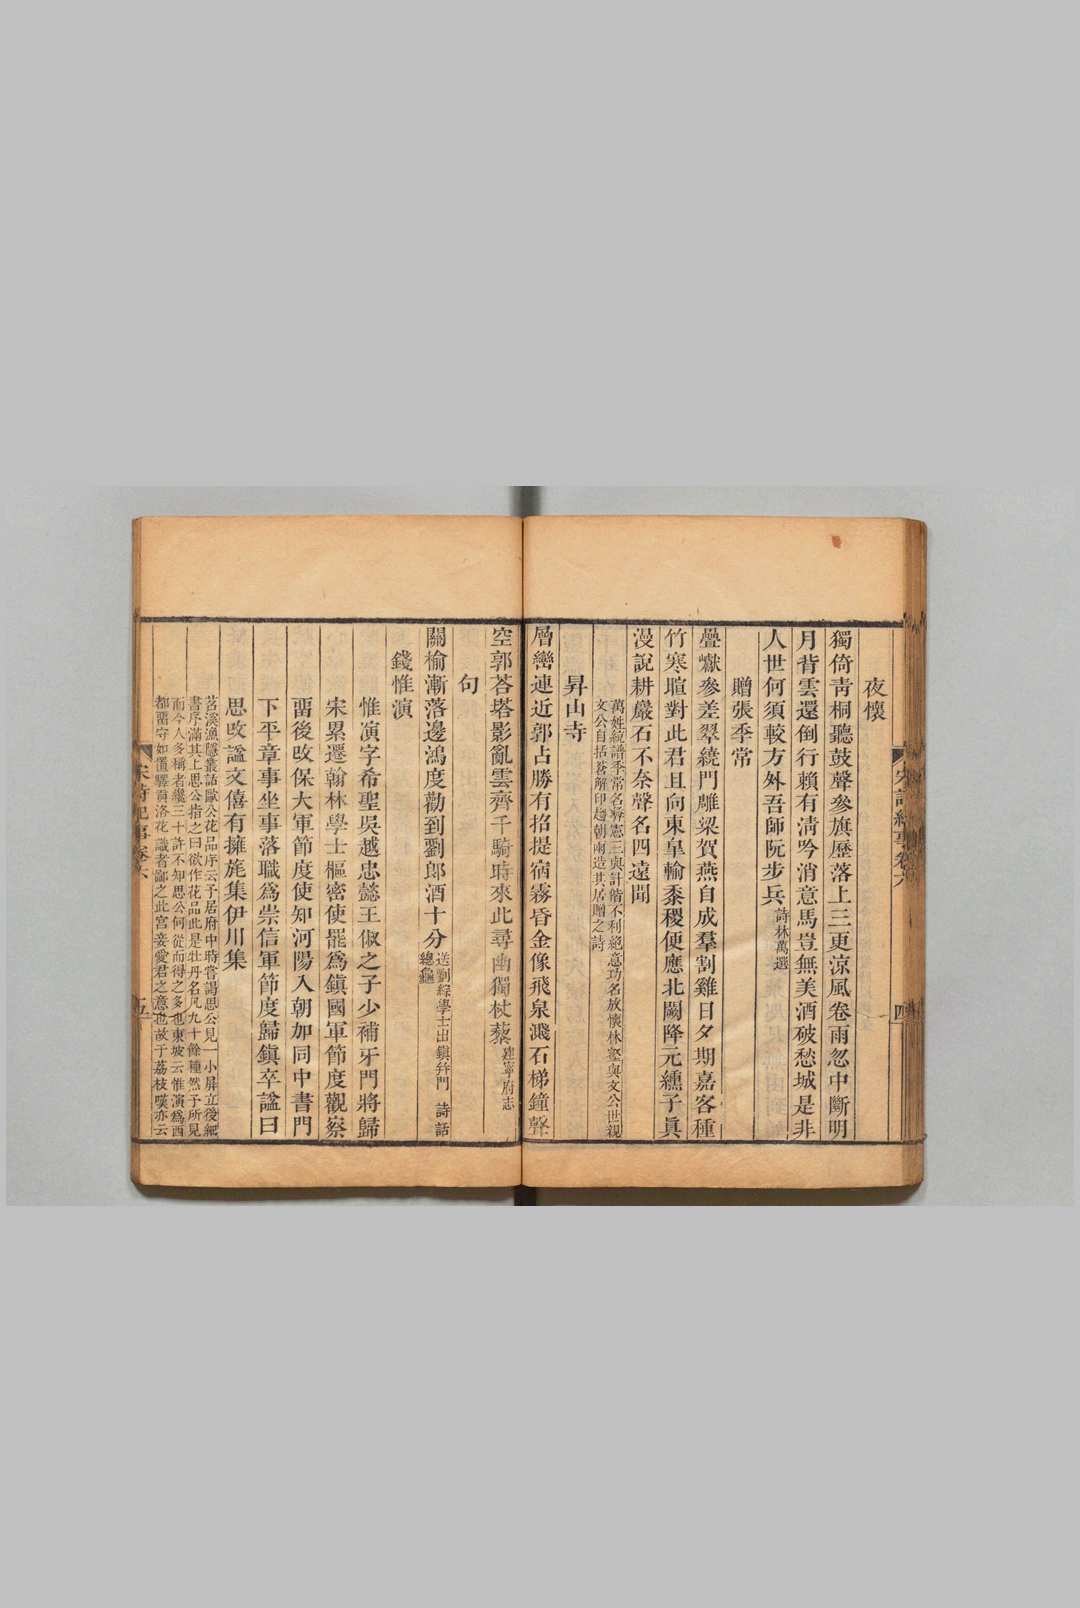 夜懷
獨倚靑桐聽鼓聲參旗歷落上三更涼風卷雨忽中斷明
月背雲還倒行賴有淸吟消意馬豈無美酒破愁城是非
人世何須較方外吾師阮步兵詩林萬選
贈張季常
疊巘參差翠繞門雕梁賀燕自成羣割雞日夕期嘉客種
竹寒暄對此君且向東皐輸黍稷便應北闕降元纁子眞
漫說耕巖石不奈聲名四遠聞
萬姓統譜季常名彝憲三與計偕不利絕意功名放懷林壑與文公世親
文公自括蒼解印趨朝閩造其居贈之詩
昇山寺
層巒連近郭占勝有招提宿霧昏金像飛泉濺石梯鐘聲
空郭荅塔影亂雲齊千騎時來此尋幽獨杖藜建寧府志
句
關榆漸落邊鴻度勸到劉郞酒十分
送劉綜學士出鎭幷門 詩話
總龜
錢惟演
惟演字希聖吳越忠懿王俶之子少補牙門將歸
宋累遷翰林學士樞密使罷爲鎭國軍節度觀察
畱後改保大軍節度使知河陽入朝加同中書門
下平章事坐事落職爲崇信軍節度歸鎭卒諡曰
思改諡文僖有擁旄集伊川集
苕溪漁隱叢話歐公花品序云予居府中時嘗謁思公見一小屛立後細
書字滿其上思公指之曰欲作花品此是牡丹名凡九十餘種然予所見
而今人多稱者纔三十許不知思公何從而得之多也東坡云惟演爲西
都畱守始置驛貢洛花識者鄙之此宮妾愛君之意也故于荔枝嘆亦云
宋詩紀事卷六
四
宋詩紀事卷六
五